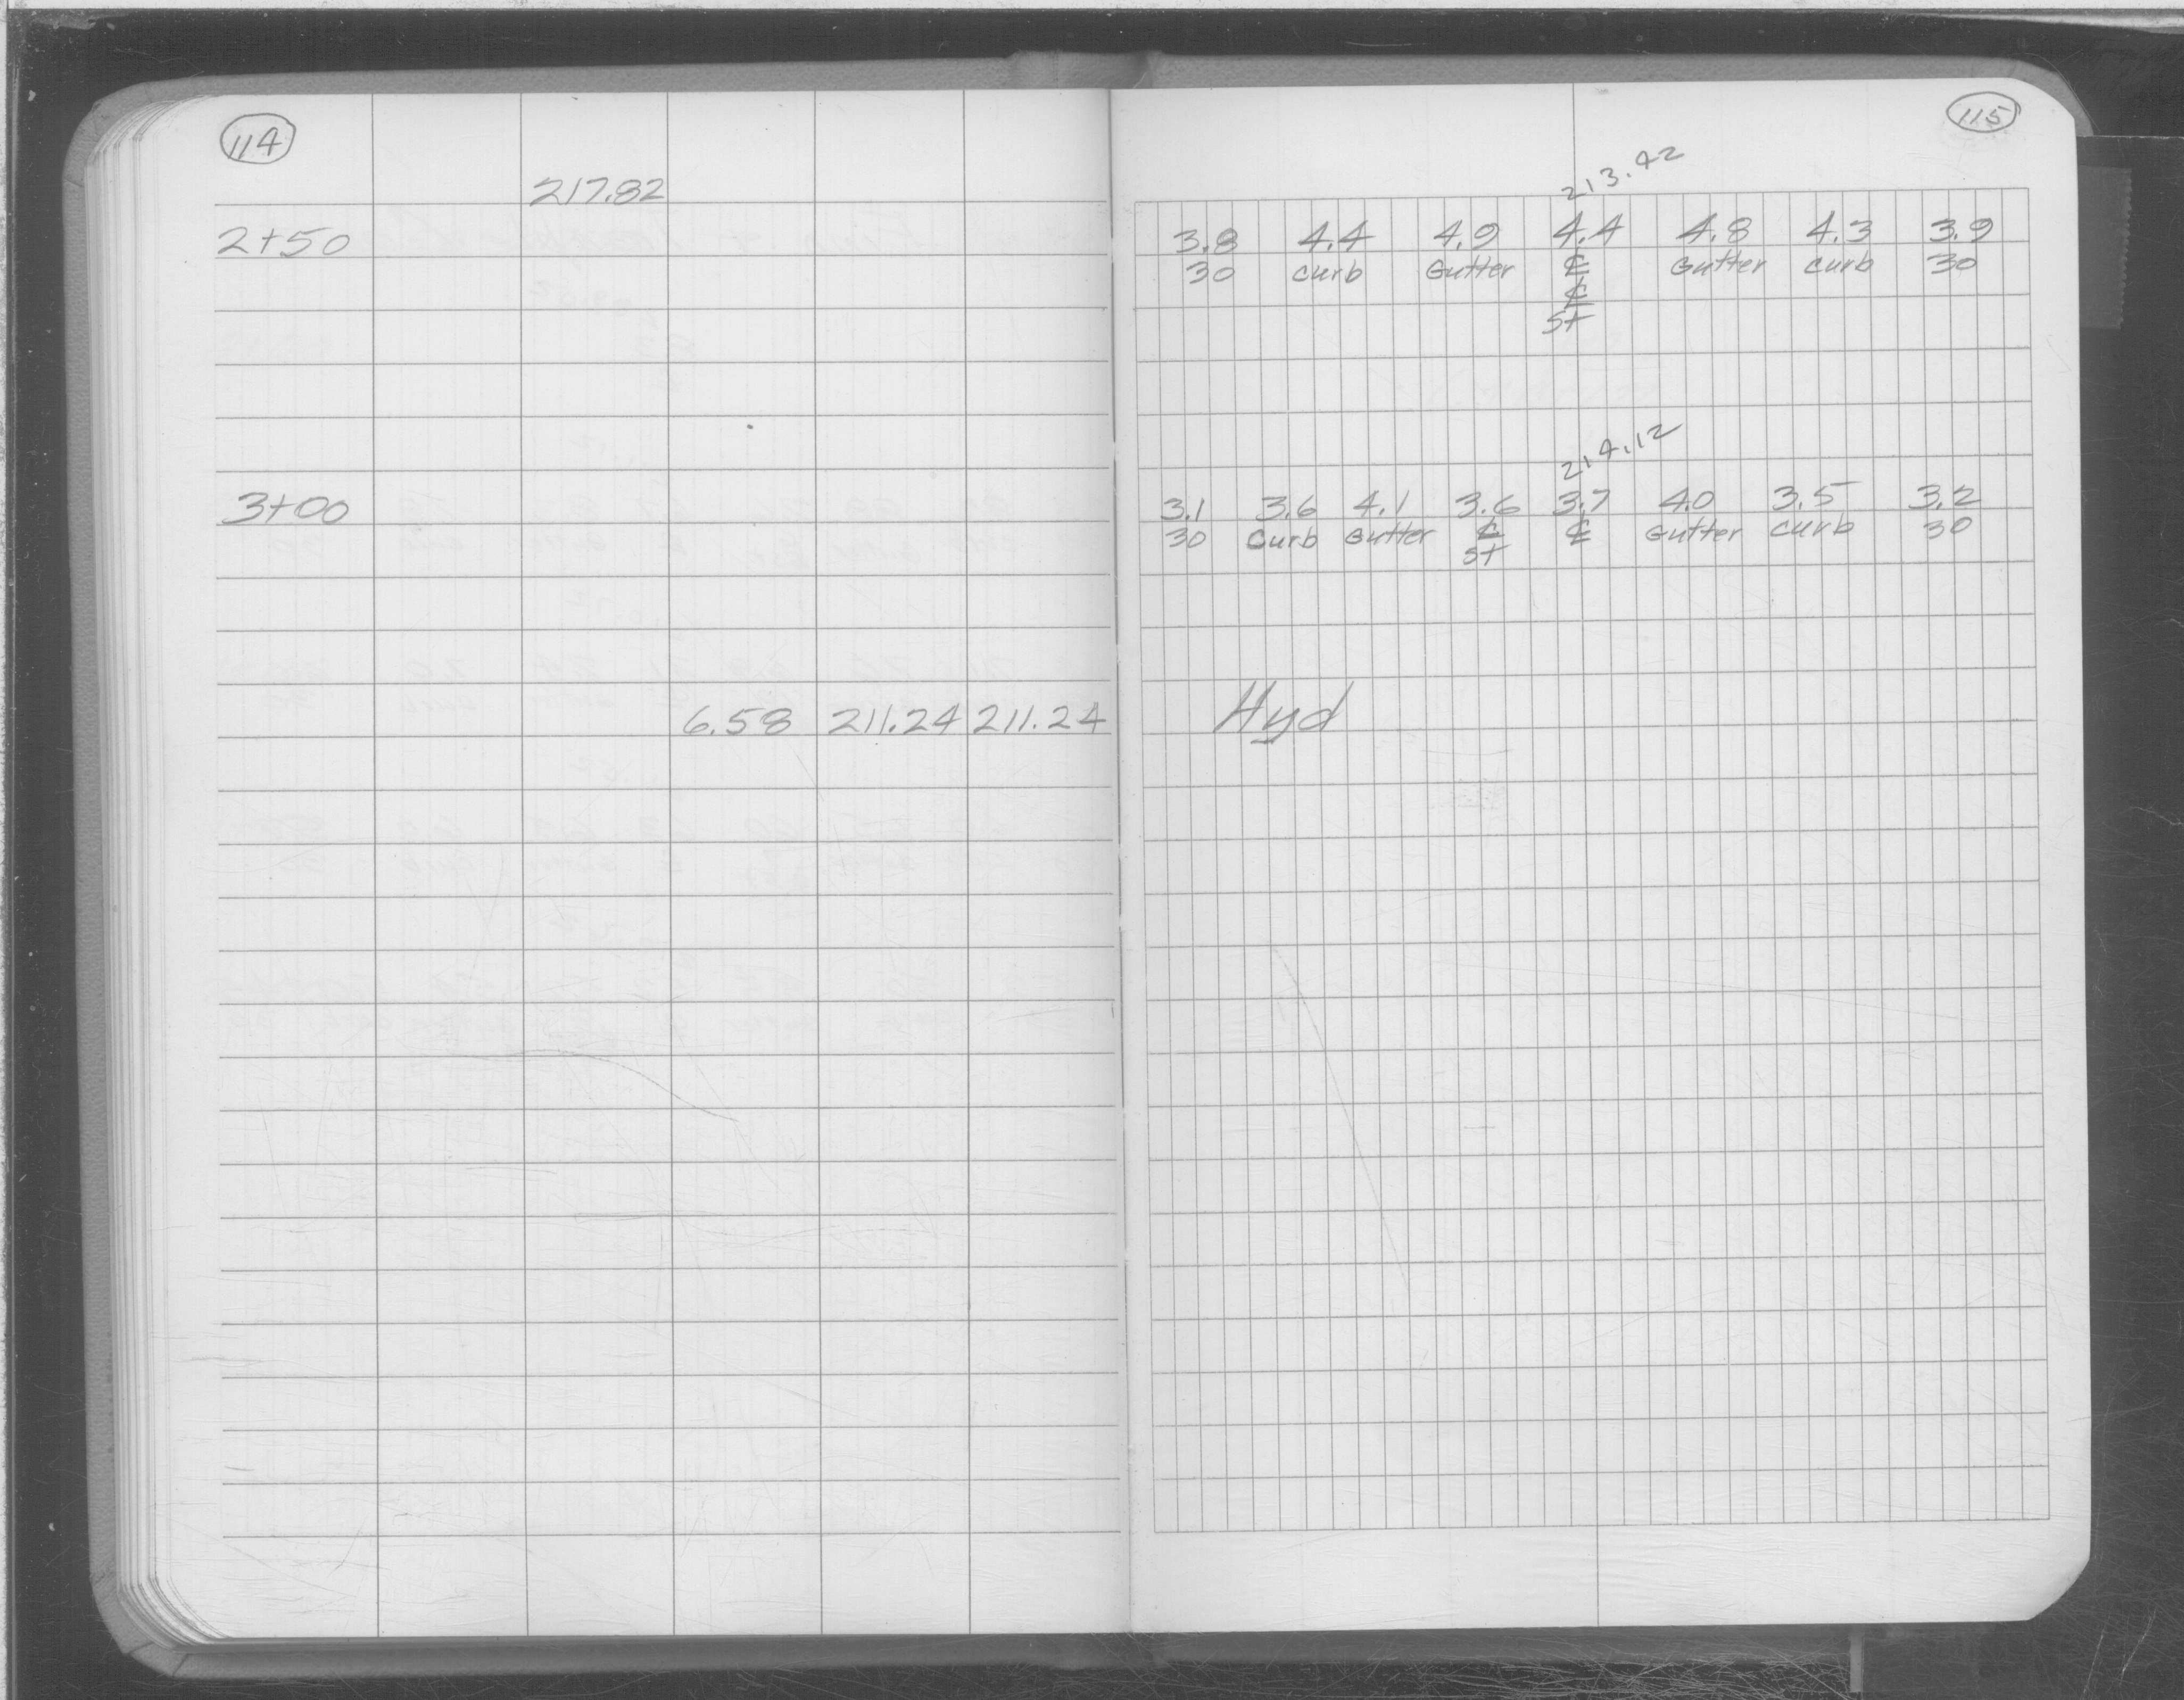 114
217.82
2+50
3+00
6.58 211.24 211.24
115
213.42
3.8 4.4 4.9 4.4 4.8 4.3 3.9
30 curb Gutter ℄ Gutter curb 30
℄
St
214.12
3.1 3.6 4.1 3.6 3.7 4.0 3.5 3.2
30 Curb Gutter ℄ ℄ Gutter curb 30
St
Hyd